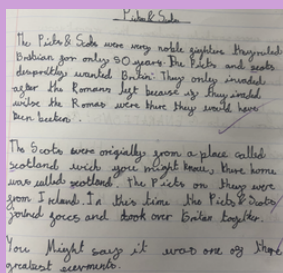 Picts & Scots
The Picts & Scots were very noble fighters they ruled
Britian for only 50 years. The Picts and scots
desprately wanted Britain. They only invaded
after the Romans left because if they invaded
wilse the Romas were there they would have
been beeten.
The Scots were originally from a place called
scotland wich you might know, there home
was called scotland. The Picts on they were
from Ireland. In this time the Picts & Scots
joined forces and took over Britan together.
You Might say it was one of there
greatest